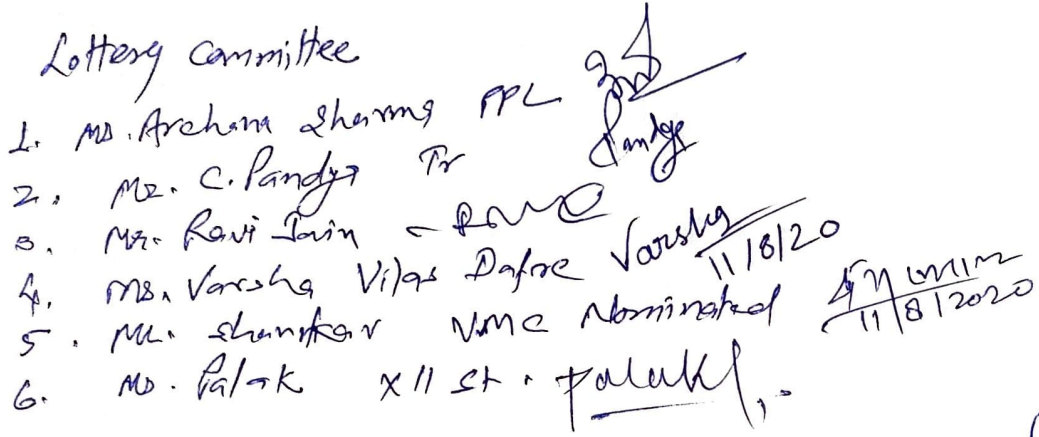 Lottery Committee
1. Ms. Archana Sharma PPL
2. Mr. C. Pandya Tr Pandya
3. Mr. Ravi Jain -
4. Ms. Varsha Vilas Dafre Varsha 11/8/20
5. Mr. Shankar VMC Nominated 11/8/2020
6. Ms. Palak XII St. Palak